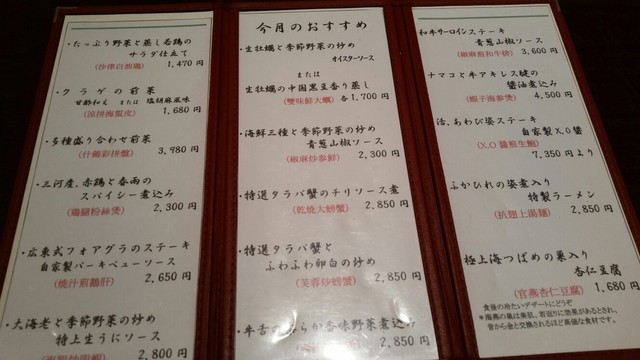 ・たっぷり野菜と蒸し若鶏の
サラダ仕立て
(沙律白油鶏) 1,470 円
・クラゲの前菜
甘酢和え または 塩胡麻風味
(涼拌海蜇皮) 1,680 円
・多種盛り合わせ前菜
(什錦彩拼盤) 3,980 円
・三河産、赤鶏と春雨の
スパイシー煮込み
(鶏腿粉絲煲) 2,300 円
・広東式フォアグラのステーキ
自家製バーベキューソース
(焼汁煎鵝肝) 2,650 円
・大海老と季節野菜の炒め
特上生うにソース
2,800 円
今月のおすすめ
・生牡蠣と季節野菜の炒め
オイスターソース
または
生牡蠣の中国黒豆香り蒸し
(雙味鮮大蠣) 各1,700 円
・海鮮三種と季節野菜の炒め
青葱山椒ソース
(椒麻炒参鮮) 2,300 円
・特選タラバ蟹のチリソース煮
(乾焼大螃蟹) 2,850 円
・特選タラバ蟹と
ふわふわ卵白の炒め
(芙蓉炒螃蟹) 2,850 円
・牛舌のやわらか香味野菜煮込み
2,850 円
和牛サーロインステーキ
青葱山椒ソース
(椒麻煎和牛排) 3,600 円
ナマコと牛アキレス腱の
醤油煮込み
(蝦子海参煲) 4,500 円
活、あわび姿ステーキ
自家製X.O醤
(X.O醤煎生鮑)
7,350 円より
ふかひれの姿煮入り
特製ラーメン
(扒翅上湯麺) 2,850 円
極上海つばめの巣入り
杏仁豆腐
(官燕杏仁豆腐) 1,680 円
食後の冷たいデザートにどうぞ
*海燕の巣は美肌、若返りに効果があるとされ、
昔から金と交換されるほど高価な食材です。